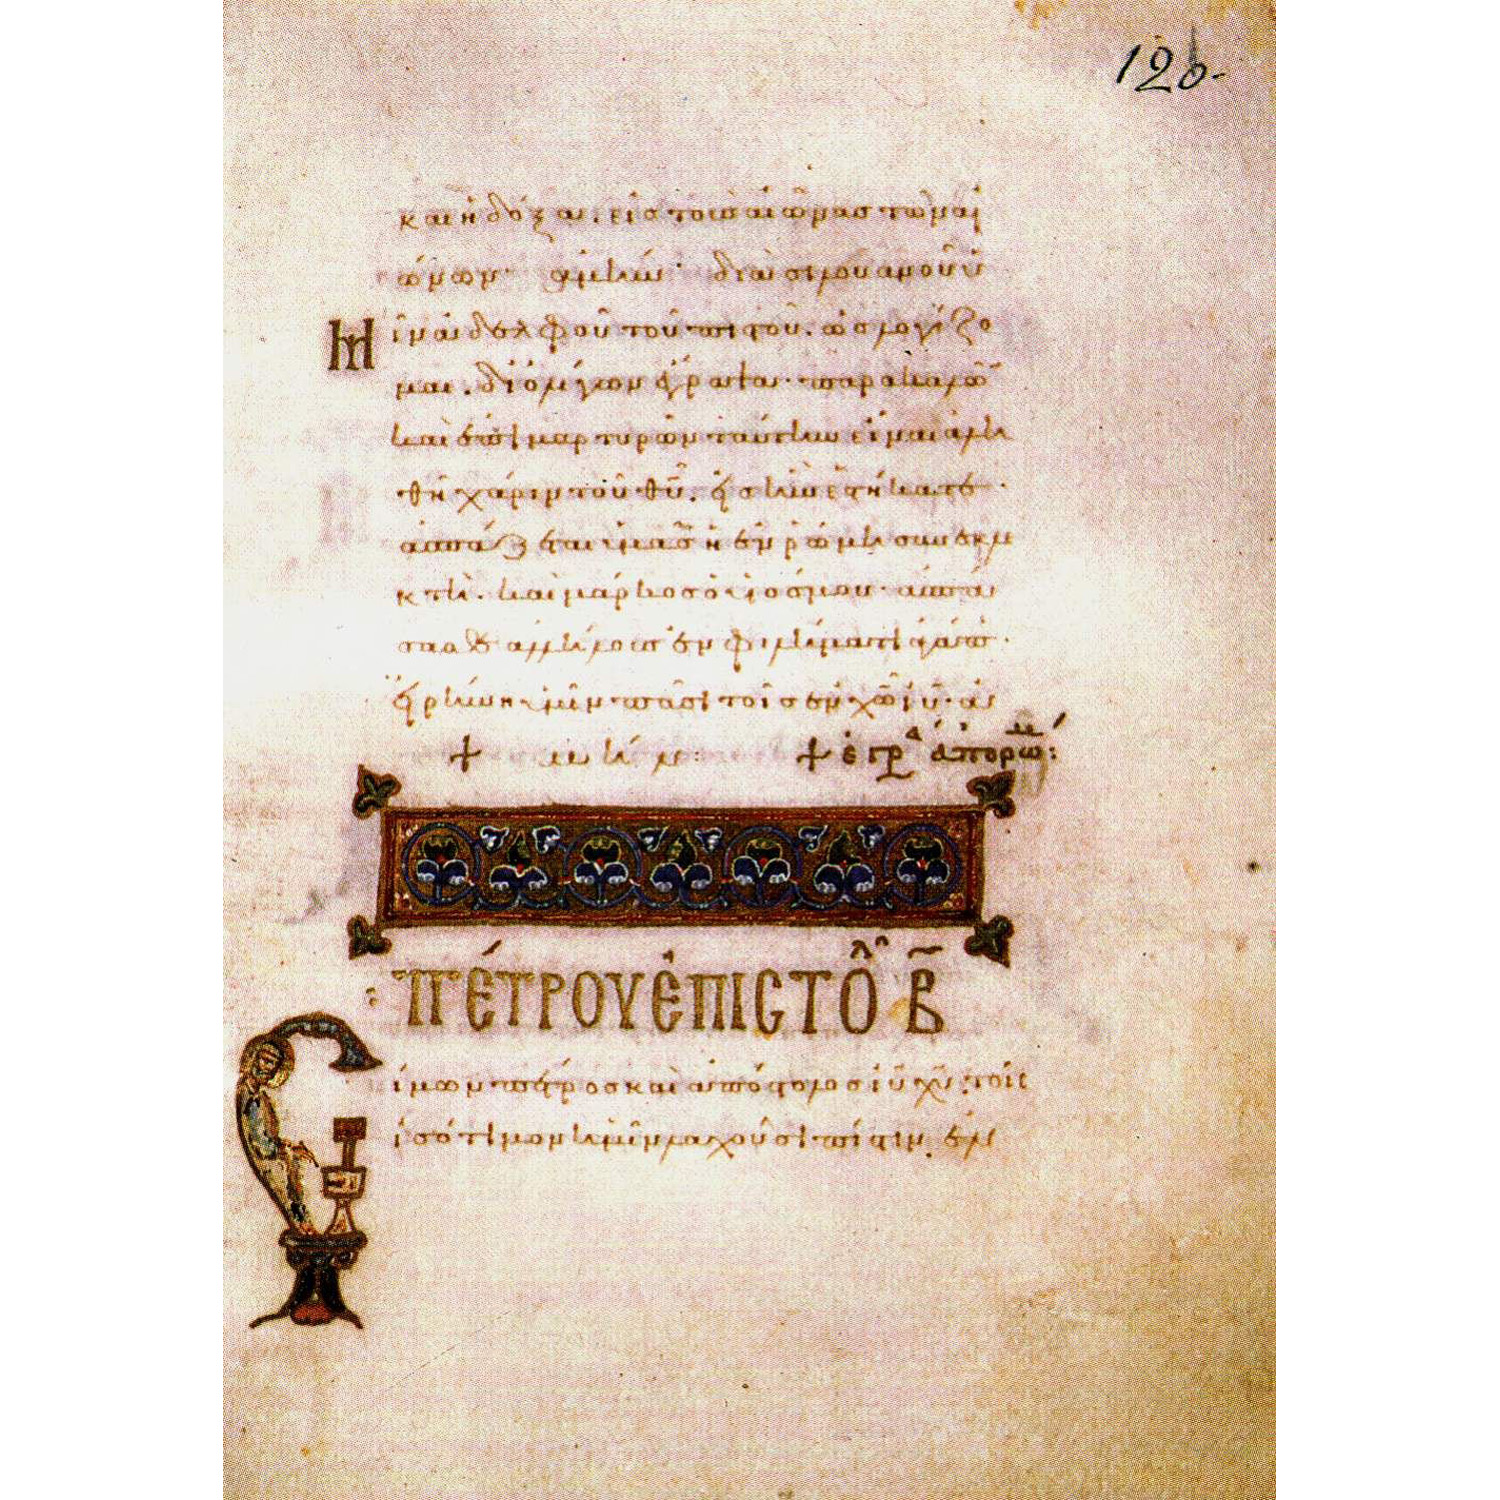 120.
καὶ ἡ δόξα. εἰς τοὺς αἰῶνας τῶν αἰ
ώνων· ἀμήν· διὰ σιλουανοῦ ὑ
Μἱν ἀδελφοῦ τοῦ πιστοῦ. ὡς λογίζο
μαι. δι' ὀλίγων ἔγραψα· παρακαλῶ
καὶ ἐπιμαρτυρῶν ταύτην εἶναι ἀλη
θῆ χάριν τοῦ θῡ. εἰς ἣν ἑστήκατε·
ἀσπάζεται ὑμᾶς ἡ ἐν ῥώμη συνεκλε
κτὴ. καὶ μάρκος ὁ υἱός μου· ἀσπά
σασθε ἀλλήλους ἐν φιλήματι ἀγάπ·
εἰρήνη ὑμῖν πᾶσι τοῖς ἐν χῶ ἰῡ· ἀ
+ μήν: + ἐγρα ἀπὸ ρώμ:
ΠΈΤΡΟΥ ἘΠΙCΤΟΛ Β̄
Cίμων πέτρος καὶ ἀπόστολος ἰῡ χῡ. τοῖς
ἰσότιμον ἡμῖν λαχοῦσι πίστιν. ἐν